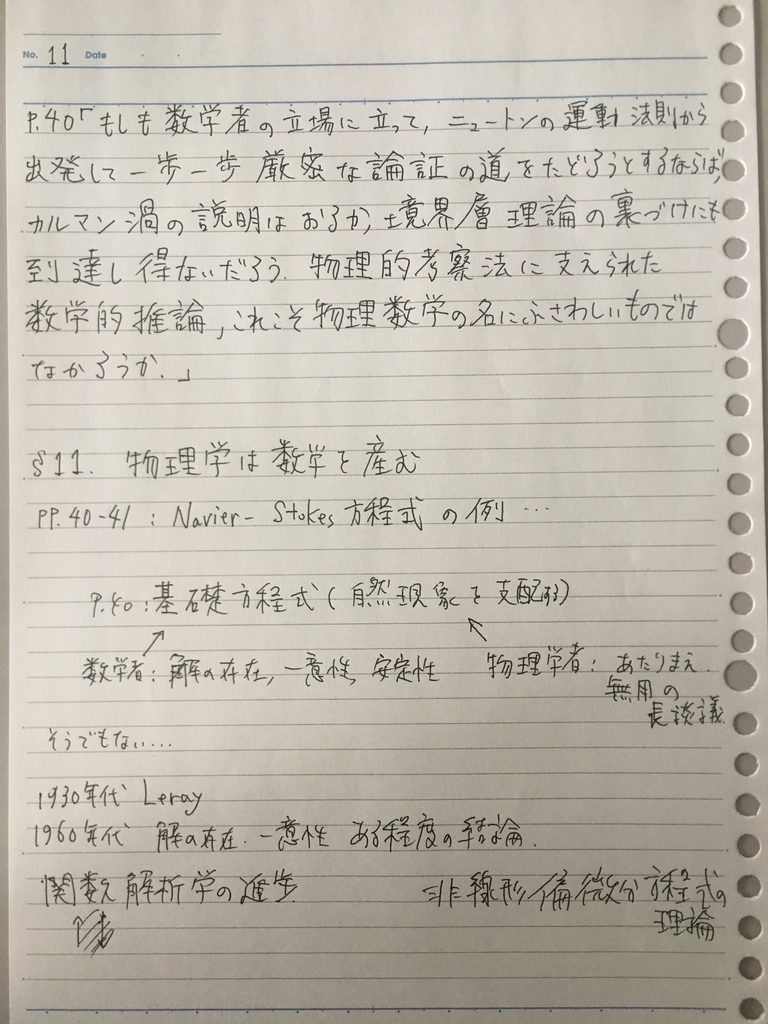 No. 11 Date
P.40「もしも数学者の立場に立って, ニュートンの運動法則から
出発して一歩一歩厳密な論証の道をたどろうとするならば,
カルマン渦の説明はおろか, 境界層理論の裏づけにも
到達し得ないだろう. 物理的考察法に支えられた
数学的推論, これこそ物理数学の名にふさわしいものでは
なかろうか.」
§11. 物理学は数学を産む
PP.40-41 : Navier-Stokes方程式の例…
P.40 : 基礎方程式(自然現象を支配する)
数学者: 解の存在, 一意性, 安定性 物理学者: あたりまえ.
無用の
長談議
そうでもない…
1930年代 Leray
1960年代 解の存在. 一意性 ある程度の結論.
関数解析学の進歩 非線形偏微分方程式の
理論